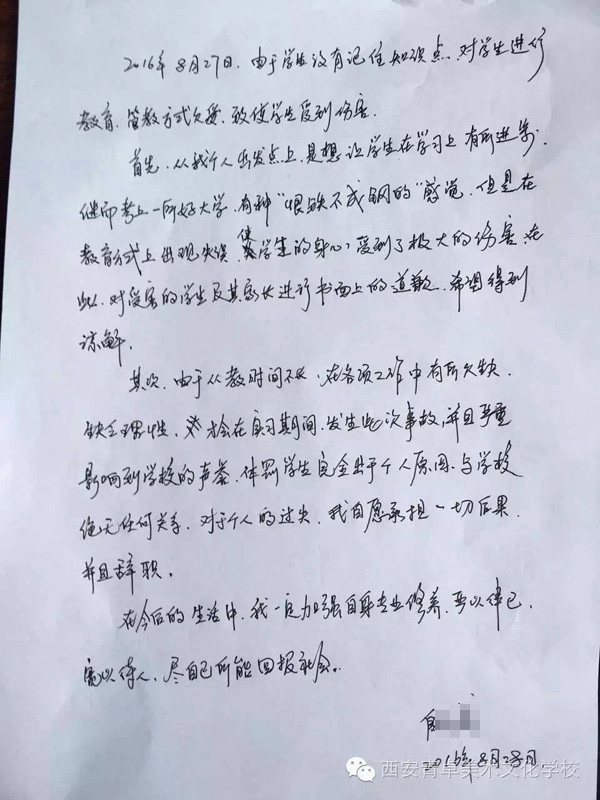 2016年8月27日，由于学生没有记住知识点，对学生进行
教育，管教方式欠妥，致使学生受到伤害。
首先，从我个人出发点上，是想让学生在学习上有所进步，
继而考上一所好大学，有种“恨铁不成钢的”感觉，但是在
教育方式上出现失误，使学生的身心受到了极大的伤害，在
此，对受害的学生及其家长进行书面上的道歉，希望得到
谅解。
其次，由于从教时间不长，在各项工作中有所欠缺，
缺乏理性，才会在实习期间，发生此次事故，并且严重
影响到学校的声誉，体罚学生完全出于个人原因，与学校
绝无任何关系，对于个人的过失，我自愿承担一切后果，
并且辞职。
在今后的生活中，我一定加强自身专业修养，严以律己，
宽以待人，尽自己所能回报社会。
2016年8月28日
西安青卓美术文化学校